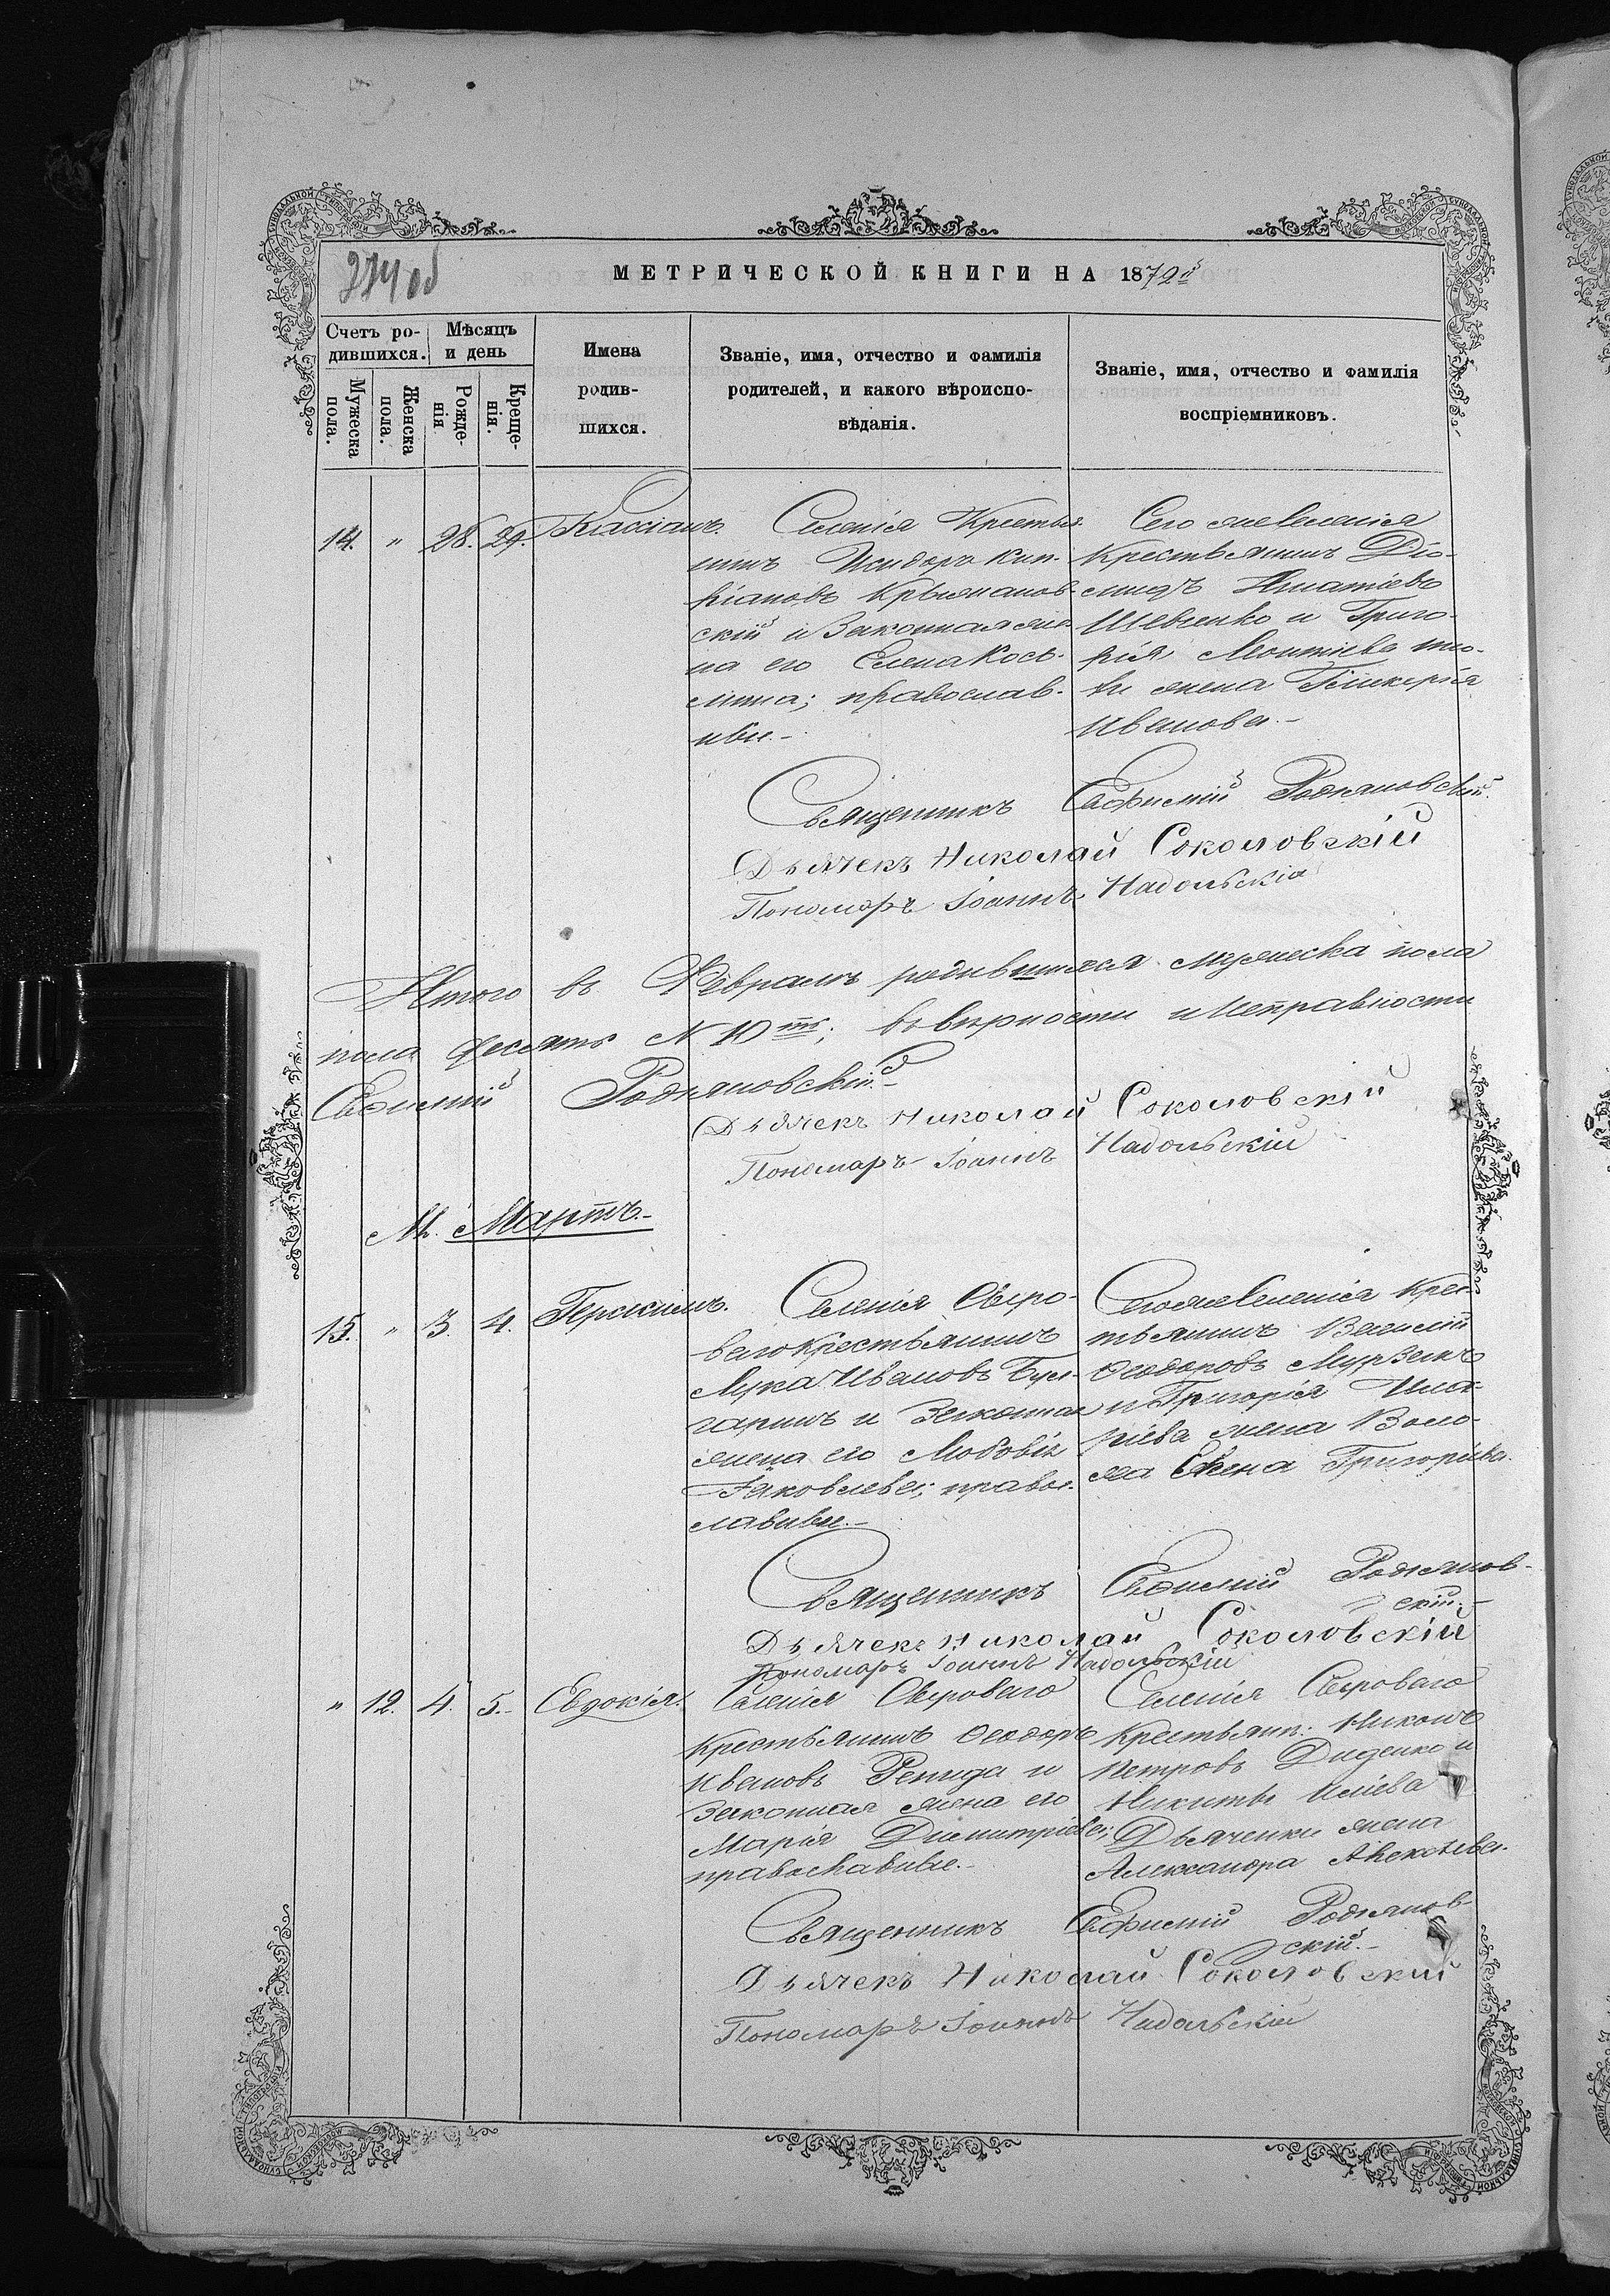 274 об
МЕТРИЧЕСКОЙ КНИГИ НА 1872й
Счетъ родившихся.
Мѣсяцъ и день
Имена родившихся.
Званіе, имя, отчество и фамилія родителей, и какого вѣроисповѣданія.
Званіе, имя, отчество и фамилія воспріемниковъ.
Мужеска пола.
Женска пола.
Рожденія
Крещенія.
14. " 28. 29. Кассіанъ.
Селенія Крестья-
нинъ Исидоръ Кип-
ріановъ Крыжанов-
скій и Законная же-
на его Елена Кось-
мина; православ-
ныи.-
Сего же Селенія
Крестьянинъ Діо-
мидъ Игнатіевъ
Шевченко и Григо-
рія Леонтіева
жена Гликерія
Иванова.-
Священникъ Евфимій Родкановскій.
Дьячекъ Николай Соколовскій
Пономаръ Іоаннъ Надольскій
Итого въ Февралѣ родившихся мужеска пола
пола десять № 10ть; въ вѣрности и исправности
Евфимій Родкановскій
Дьячекъ Николай Соколовскій
Пономаръ Іоаннъ Надольскій
М. Мартъ.-
15. " 3. 4. Герасимъ.
Селенія Сѣро-
ваго Крестьянинъ
Лука Ивановъ Бул-
гаринъ и Законная
жена его Любовія
Іаковлева; правос-
лавныи.-
Сего же Селенія Крес-
тьянинъ Василій
Ѳеодоровъ Мурзакъ
и Григорія
жена
Елена Григоріева.
Священникъ Евфимій Родканов-
скій.-
Дьячекъ Николай Соколовскій
Пономаръ Іоаннъ Надольскій
" 12. 4. 5.- Евдокія.
Селенія Сѣроваго
Крестьянинъ Ѳеодоръ
Ивановъ Репида и
Законная жена его
Марія Димитріева;
православные.-
Селенія Сѣроваго
Крестьянин: Никонъ
Петровъ Диденко и
Никиты Иліева
Дьяченки жена
Александра Алексѣева.
Священникъ Евфимій Родканов-
скій.-
Дьячекъ Николай Соколовскій
Пономаръ Іоаннъ Надольскій